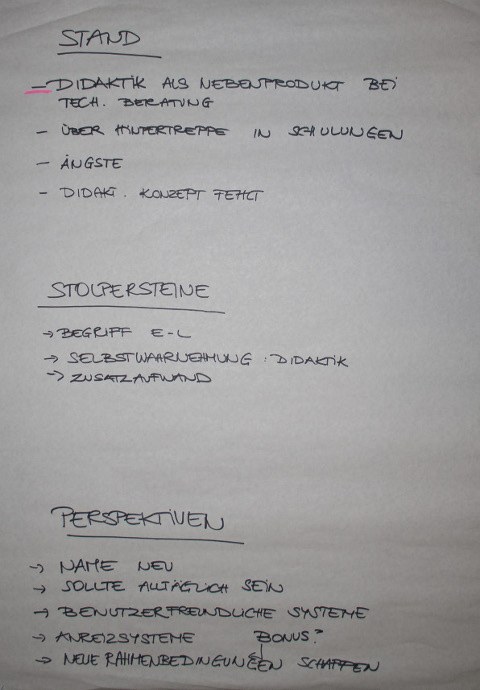 STAND
- DIDAKTIK ALS NEBENPRODUKT BEI
TECH. BERATUNG
- ÜBER HINTERTREPPE IN SCHULUNGEN
- ÄNGSTE
- DIDAKT. KONZEPT FEHLT
STOLPERSTEINE
→ BEGRIFF E-L
→ SELBSTWAHRNEHMUNG : DIDAKTIK
→ ZUSATZAUFWAND
PERSPEKTIVEN
→ NAME NEU
→ SOLLTE ALLTÄGLICH SEIN
→ BENUTZERFREUNDLICHE SYSTEME
→ ANREIZSYSTEME BONUS?
→ NEUE RAHMENBEDINGUNGEN SCHAFFEN